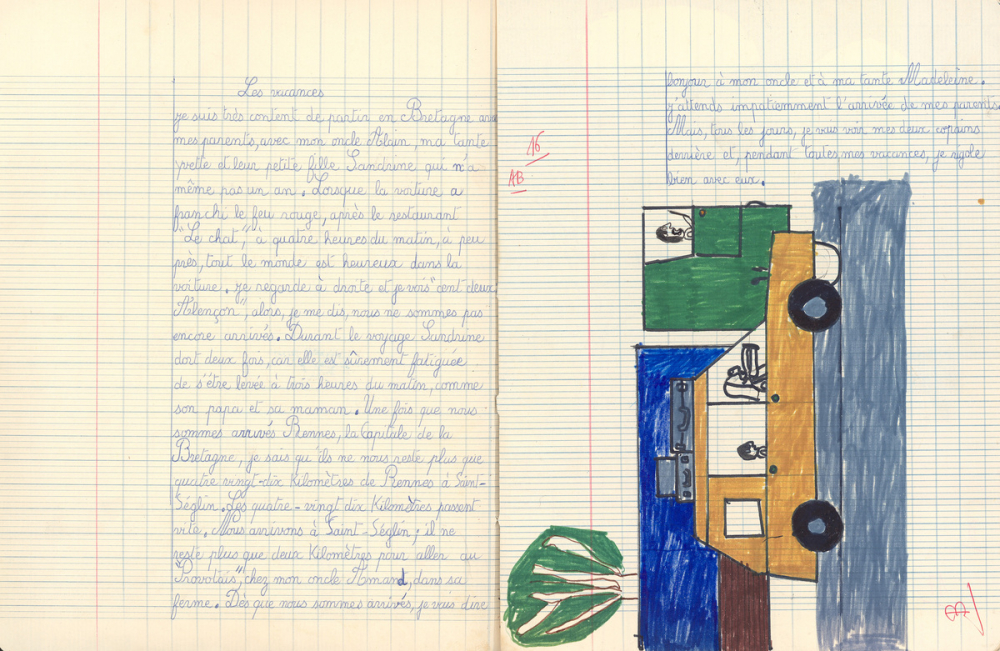 Les vacances
je suis très content de partir en Bretagne avec
mes parents, avec mon oncle Alain, ma tante
yvette et leur petite fille Sandrine qui n'a
même pas un an. Lorsque la voiture a
franchi le feu rouge, après le restaurant
"Le chat", à quatre heures du matin, à peu
près, tout le monde est heureux dans la
voiture. Je regarde à droite et je vois "cent deux
Alençon", alors, je me dis, nous ne sommes pas
encore arrivés. Durant le voyage Sandrine
dort deux fois, car elle est sûrement fatiguée
de s'être levée à trois heures du matin, comme
son papa et sa maman. Une fois que nous
sommes arrivés Rennes, la Capitale de la
Bretagne, je sais qu'ils ne nous reste plus que
quatre vingt-dix Kilomètres de Rennes à Saint-
Séglin. Les quatre-vingt dix Kilomètres passent
vite. Nous arrivons à Saint-Séglin ; il ne
reste plus que deux Kilomètres pour aller au
"Provotais", chez mon oncle Armand, dans sa
ferme. Dès que nous sommes arrivés, je vais dire
bonjour à mon oncle et à ma tante Madeleine.
J'attends impatiemment l'arrivée de mes parents.
Mais, tous les jours, je vais voir mes deux copains
derrière et, pendant toutes mes vacances, je rigole
bien avec eux.
16
AB